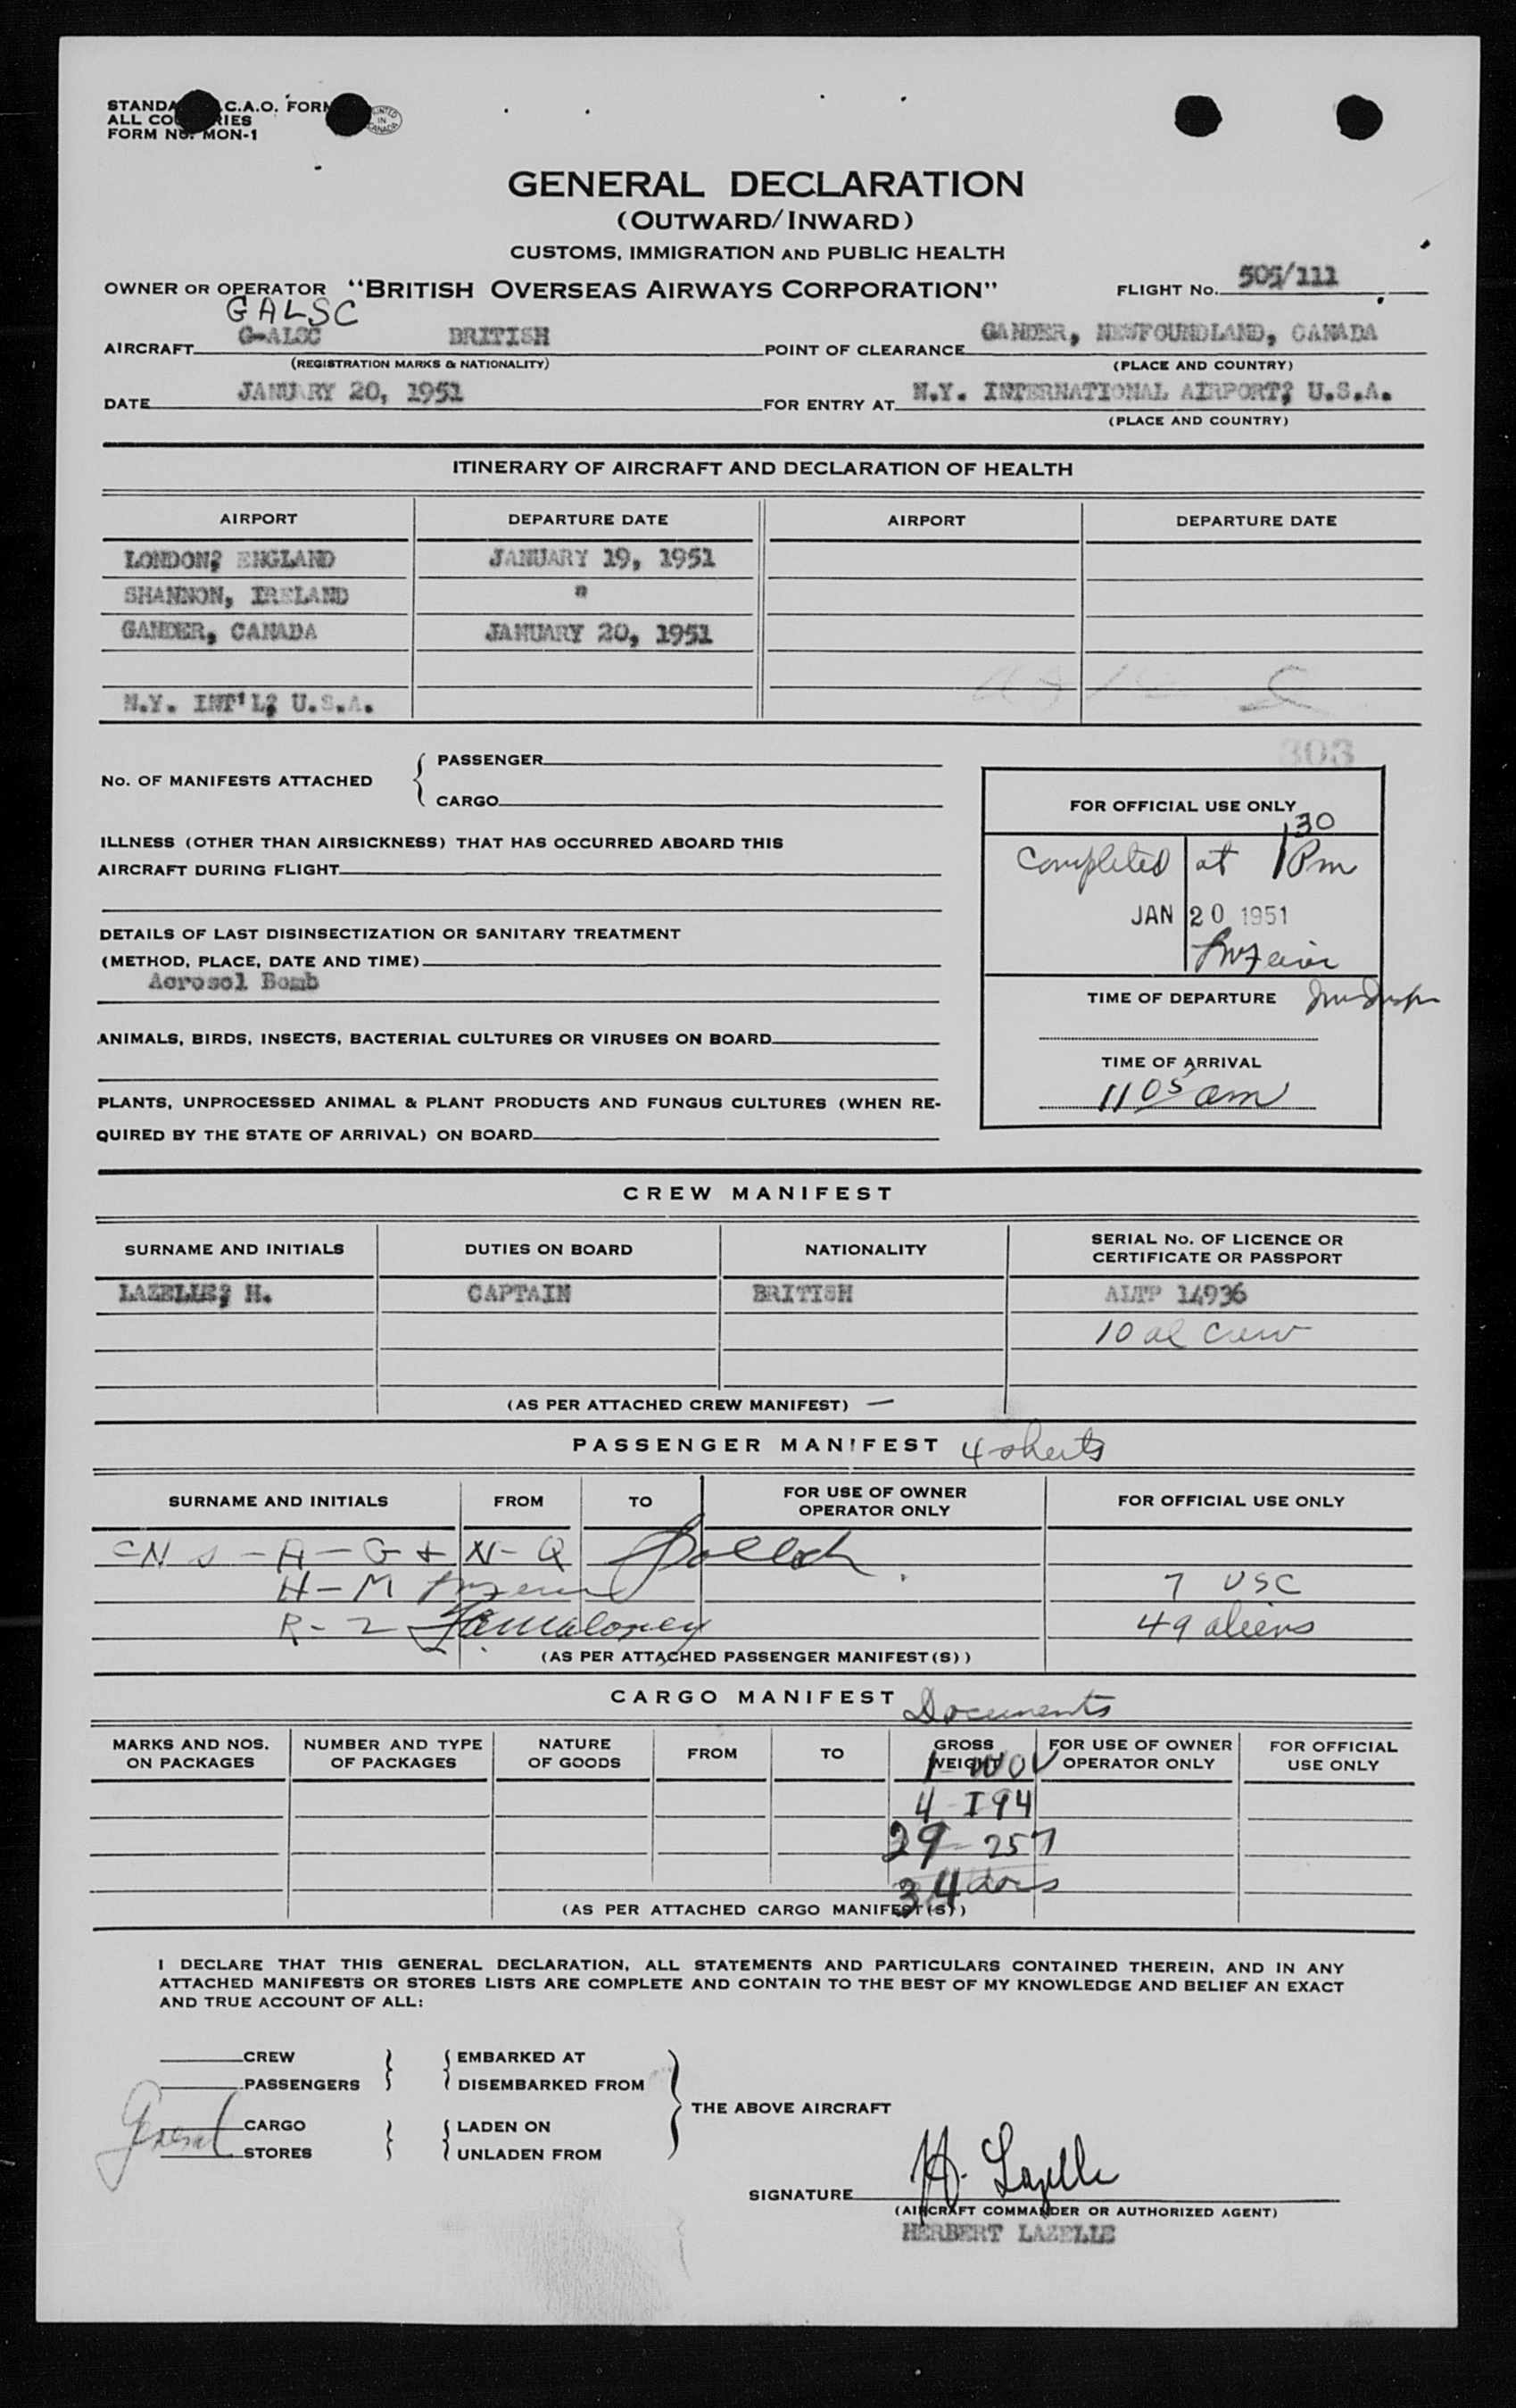 STANDA C.A.O. FORM
ALL CO RIES
FORM No. MON-1
PRINTED IN CANADA
GENERAL DECLARATION
(OUTWARD/INWARD)
CUSTOMS, IMMIGRATION AND PUBLIC HEALTH
OWNER OR OPERATOR "BRITISH OVERSEAS AIRWAYS CORPORATION" FLIGHT No. 505/111
GALSC
AIRCRAFT G-ALSC BRITISH POINT OF CLEARANCE GANDER, NEWFOUNDLAND, CANADA
(REGISTRATION MARKS & NATIONALITY) (PLACE AND COUNTRY)
DATE JANUARY 20, 1951 FOR ENTRY AT N.Y. INTERNATIONAL AIRPORT; U.S.A.
(PLACE AND COUNTRY)
ITINERARY OF AIRCRAFT AND DECLARATION OF HEALTH
AIRPORT DEPARTURE DATE AIRPORT DEPARTURE DATE
LONDON; ENGLAND JANUARY 19, 1951
SHANNON, IRELAND "
GANDER, CANADA JANUARY 20, 1951
N.Y. INT'L; U.S.A.
303
No. OF MANIFESTS ATTACHED { PASSENGER
CARGO
FOR OFFICIAL USE ONLY
ILLNESS (OTHER THAN AIRSICKNESS) THAT HAS OCCURRED ABOARD THIS
AIRCRAFT DURING FLIGHT
Completed at 1 30 Pm
JAN 20 1951
DETAILS OF LAST DISINSECTIZATION OR SANITARY TREATMENT
(METHOD, PLACE, DATE AND TIME)
Aerosol Bomb
TIME OF DEPARTURE
ANIMALS, BIRDS, INSECTS, BACTERIAL CULTURES OR VIRUSES ON BOARD
TIME OF ARRIVAL
11 05 am
PLANTS, UNPROCESSED ANIMAL & PLANT PRODUCTS AND FUNGUS CULTURES (WHEN RE-
QUIRED BY THE STATE OF ARRIVAL) ON BOARD
CREW MANIFEST
SURNAME AND INITIALS DUTIES ON BOARD NATIONALITY SERIAL No. OF LICENCE OR
CERTIFICATE OR PASSPORT
LAZELLE; H. CAPTAIN BRITISH ALTP 14936
10 al Crew
(AS PER ATTACHED CREW MANIFEST) —
PASSENGER MANIFEST 4 sheets
SURNAME AND INITIALS FROM TO FOR USE OF OWNER
OPERATOR ONLY FOR OFFICIAL USE ONLY
A - G + N - Q
H - M 7 USC
R - Z 49 aliens
(AS PER ATTACHED PASSENGER MANIFEST(S))
CARGO MANIFEST Documents
MARKS AND NOS.
ON PACKAGES NUMBER AND TYPE
OF PACKAGES NATURE
OF GOODS FROM TO GROSS
WEIGHT FOR USE OF OWNER
OPERATOR ONLY FOR OFFICIAL
USE ONLY
4 - I 94
29 - 257
34 docs
(AS PER ATTACHED CARGO MANIFEST(S))
I DECLARE THAT THIS GENERAL DECLARATION, ALL STATEMENTS AND PARTICULARS CONTAINED THEREIN, AND IN ANY
ATTACHED MANIFESTS OR STORES LISTS ARE COMPLETE AND CONTAIN TO THE BEST OF MY KNOWLEDGE AND BELIEF AN EXACT
AND TRUE ACCOUNT OF ALL:
CREW EMBARKED AT
PASSENGERS DISEMBARKED FROM
THE ABOVE AIRCRAFT
CARGO LADEN ON
STORES UNLADEN FROM
SIGNATURE H. Lazelle
(AIRCRAFT COMMANDER OR AUTHORIZED AGENT)
HERBERT LAZELLE